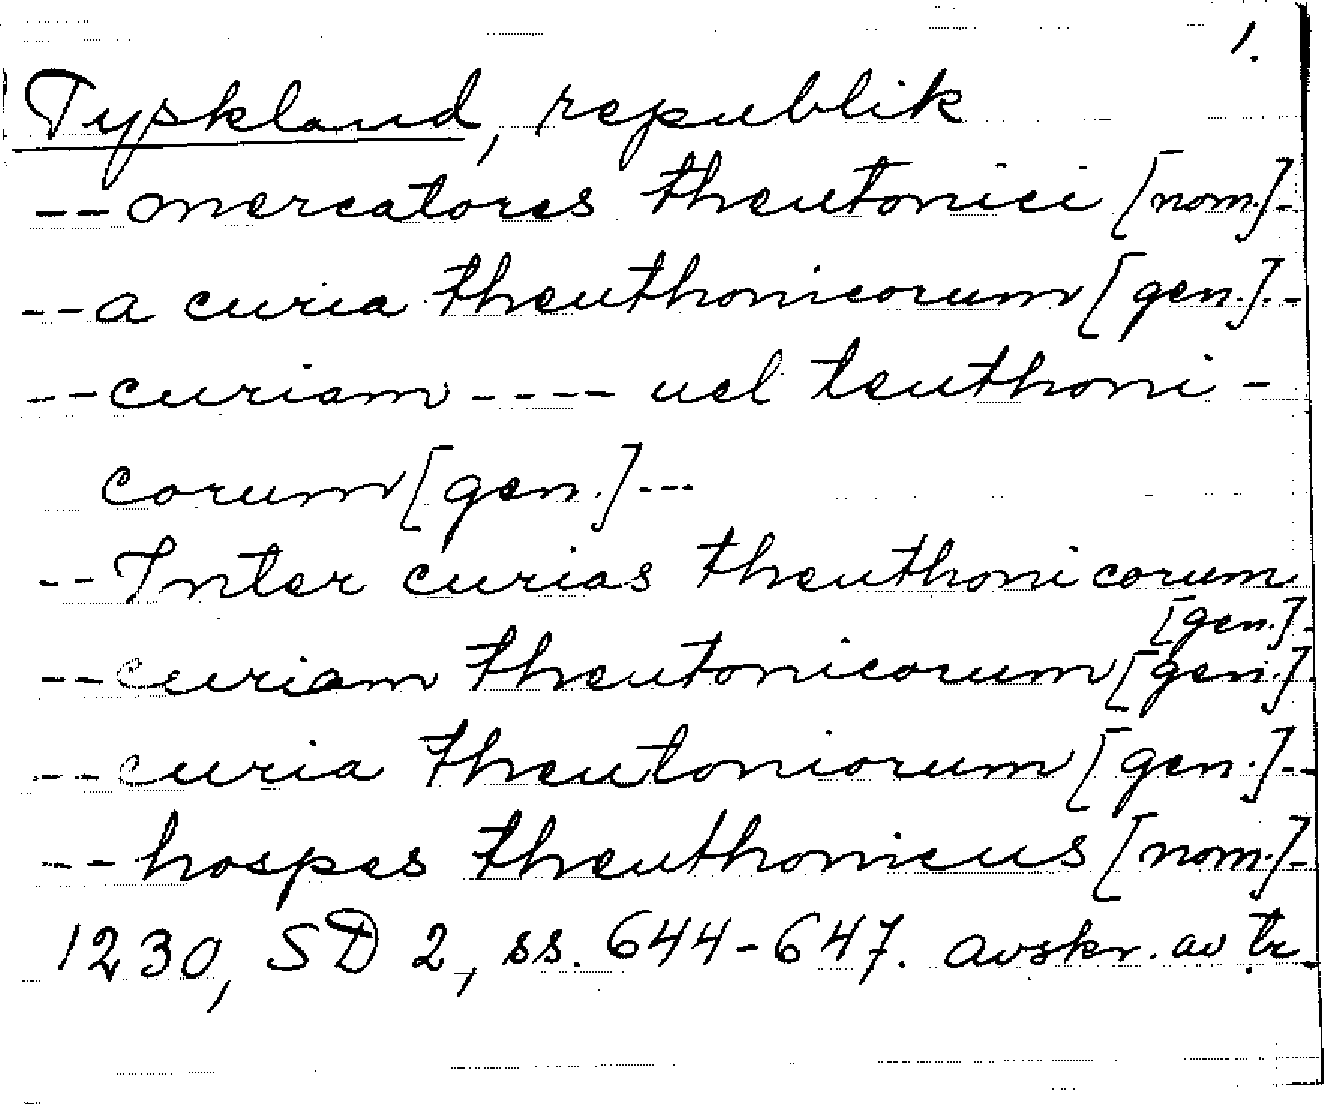 1.
Tyskland, republik
-- mercatores theutonici [nom.]-
-- a curia theuthonicorum [gen.]--
-- curiam ---- uel teuthoni-
corum [gen.] ---
-- Inter curias theuthonicorum
[gen.]-
-- curiam theutonicorum [gen.]-
-- curia theutoniorum [gen.]--
-- hospes theuthonicus [nom.]-
1230, SD 2, ss. 644-647. avskr. av tr.